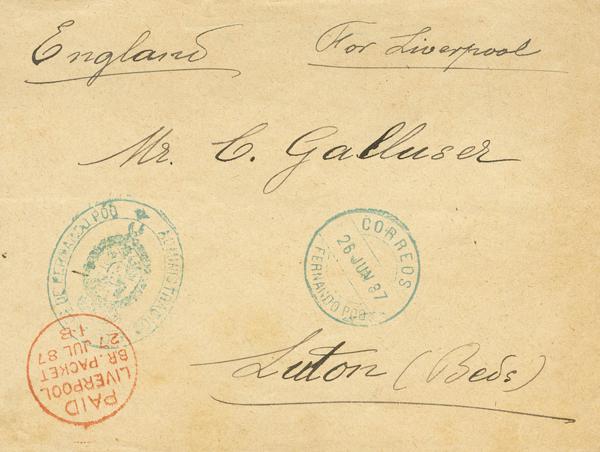 England
For Liverpool
Mr. C. Galluser
FERNANDO POO
CORREOS
26 JUN 87
FERNANDO POO
PAID
LIVERPOOL
BR. PACKET
27 JUL 87
Luton (Beds)